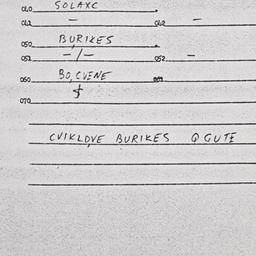 040 SOLAXC
041 - 042 -
050 BURIKES
051 -/- 052 -
060 BO, CVENE
070
CVIKLOVE BURIKES Q GUTE